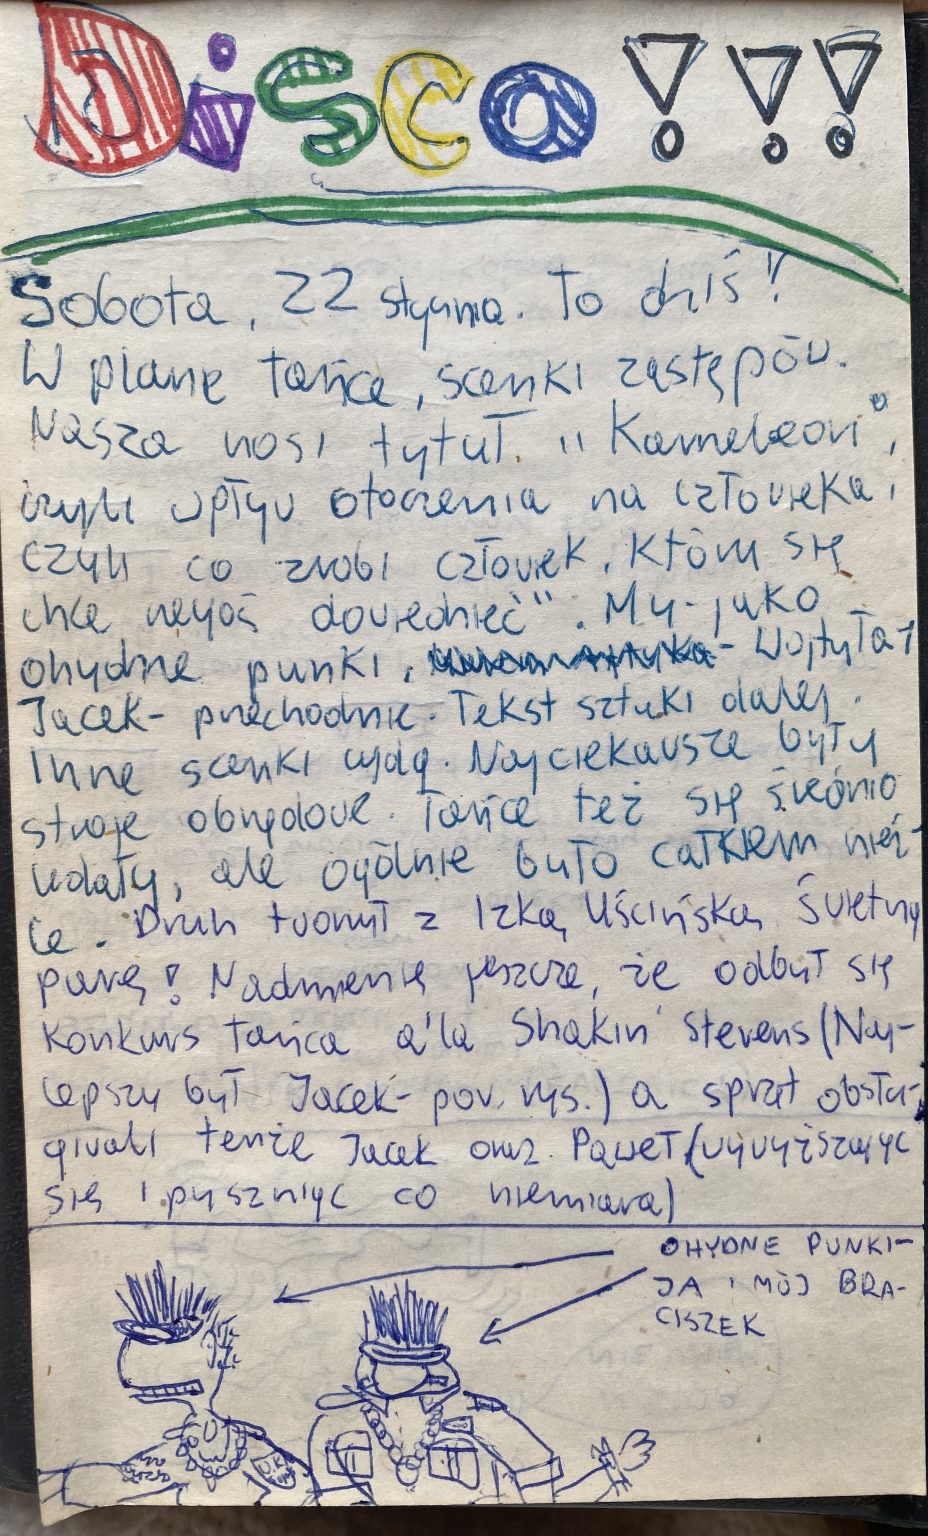 Disco!!!
Sobota, 22 stycznia. To dziś!
W planie tańce, scenki zastępów.
Nasza nosi tytuł "Kameleon",
czyli wpływ otoczenia na człowieka,
czyli co zrobi człowiek, który się
chce negoś dowiedzieć". My-jako
ohydne punki, - Wojtyła i
Jacek- przechodnie. Tekst sztuki dalej.
Inne scenki wyjdą. Najciekawsze były
stroje obrzędowe. Tańce też się średnio
udały, ale ogólnie było całkiem nieź-
le. Druh tworzył z Izką Uścińską świetną
parę! Nadmienię jeszcze, że odbył się
konkurs tańca a'la Shakin' Stevens (Naj-
lepszy był Jacek- pow. rys.) a sprzęt obsłu-
giwali tenże Jacek oraz Paweł (wywyższając
się i pyszniąc co niemiara)
OHYDNE PUNKI-
JA I MÓJ BRA-
CISZEK